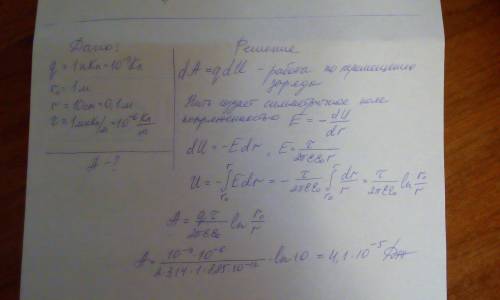 Дано:
q = 1нКл = 10⁻⁹ Кл
r₀ = 1м
r = 10см = 0,1м
τ = 1мкКл/м = 10⁻⁶ Кл/м
A - ?
Решение
dA = qdU - работа по перемещению
заряда
Нить создает симметричное поле
напряженностью E = - dU/dr
dU = -Edr, E = τ/2πεε₀
U = -∫Edr = - τ/2πεε₀ ∫ dr/r = τ/2πεε₀ ln r₀/r
A = qτ/2πεε₀ ln r₀/r
A = 10⁻⁹·10⁻⁶/2·3,14·1·8,85·10⁻¹² · ln10 = 4,1·10⁻⁵ Дж